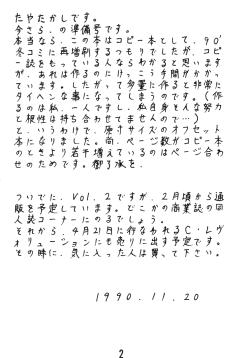 たやたかしです。
今さら、の準備号です。
本当なら、この本はコピー本として、90'
冬コミに再増刷するつもりでしたが、コピ
ー誌をもっている人ならわかると思います
が、あれは作るのにけっこう手間がかかっ
ています。したがって多量に作ると非常に
タイヘンな事になってしまうのです。（作
るのは私一人ですし、私自身そんな努力
と根性は持ち合わせてませんので…）
と、いうわけで、原寸サイズのオフセット
本になりました。尚、ページ数がコピー本
のときより若干増えているのはページ合わ
せのためです。御了承を。
ついでに、Vol.2ですが、2月頃から通
販を予定しています。どこかの商業誌の同
人誌コーナーにのるでしょう。
それから、4月21日に行なわれるC・レヴ
ォリューションにも売りに出す予定です。
その時に、気に入った人は買って下さい。
1990.11.20
2